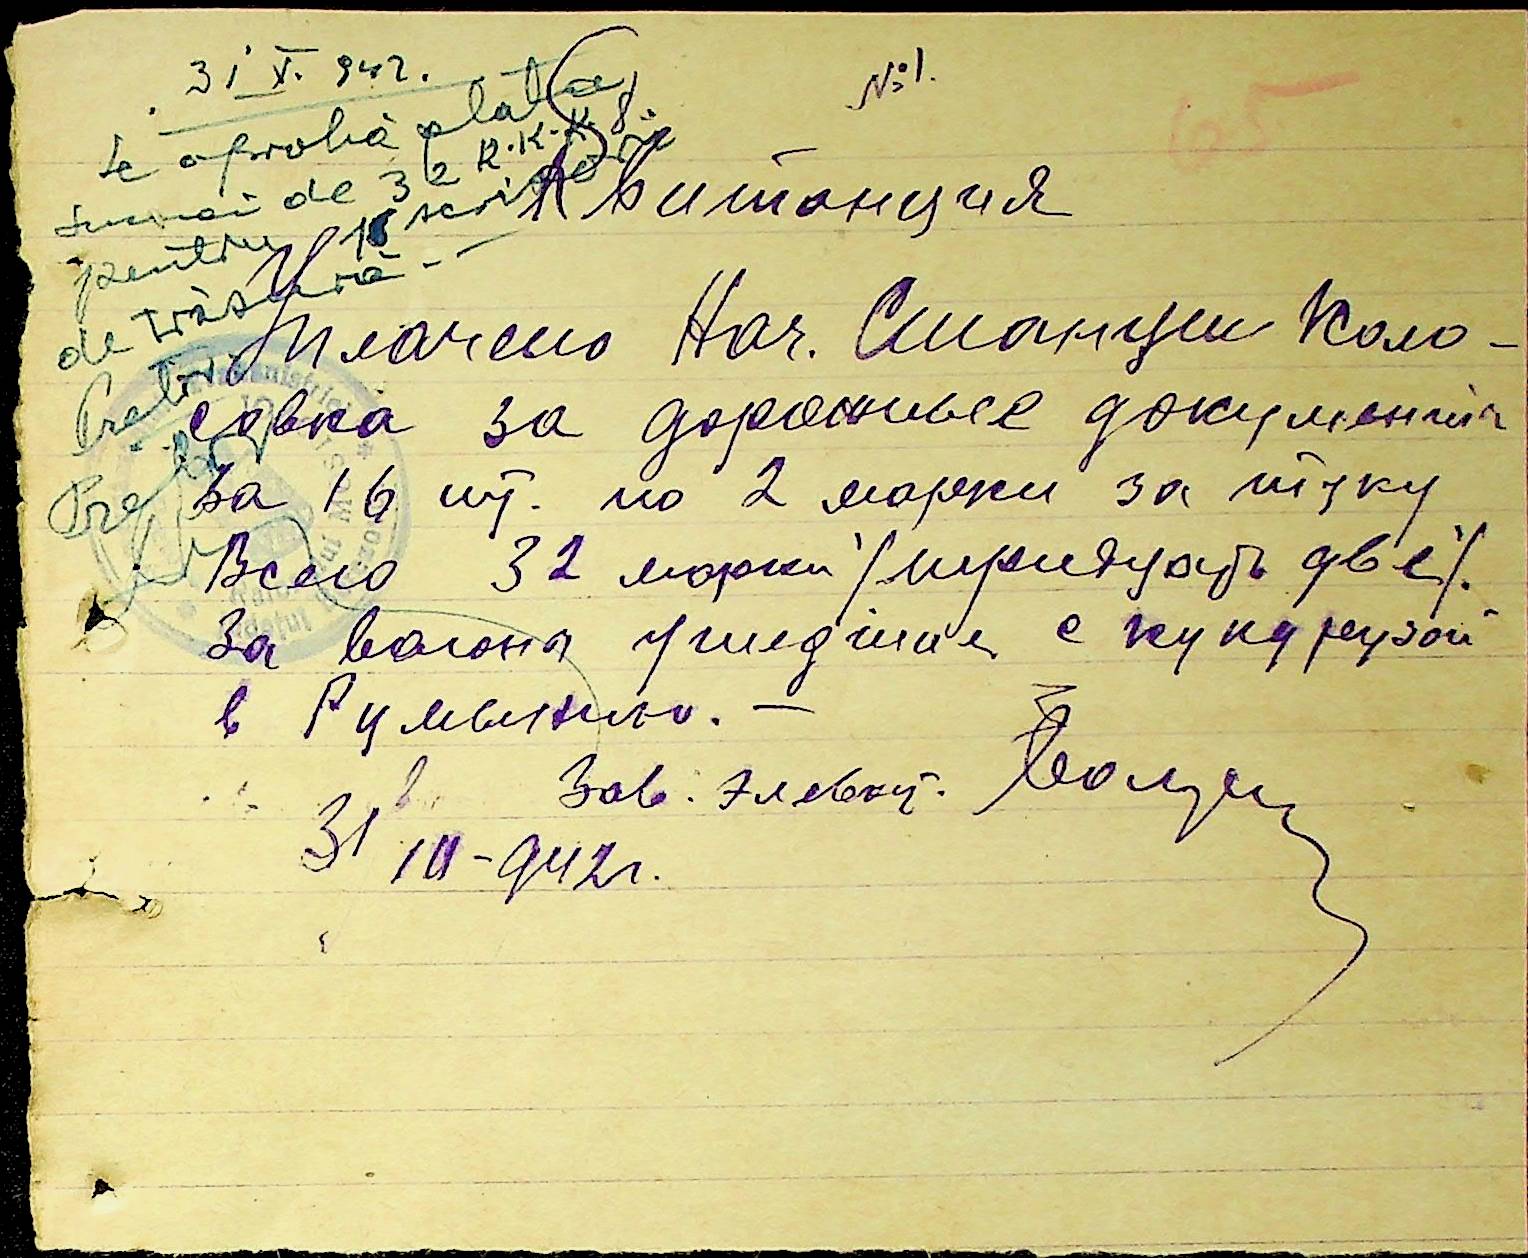 31 X. 942.
Se aprobă plata
sumei de 32 R.K.K.S.
pentru 16 scrisori
de trăsură.-
Pretor
№1.
65
Квитанция
Уплачено Нач. Станции Коло-
совка за дорожные документы
за 16 шт. по 2 марки за штуку
Всего 32 марки /тридцать две/.
За вагоны ушедшие с кукурузой
в Румынию. —
Зав. Элеват.
31 III-942г.